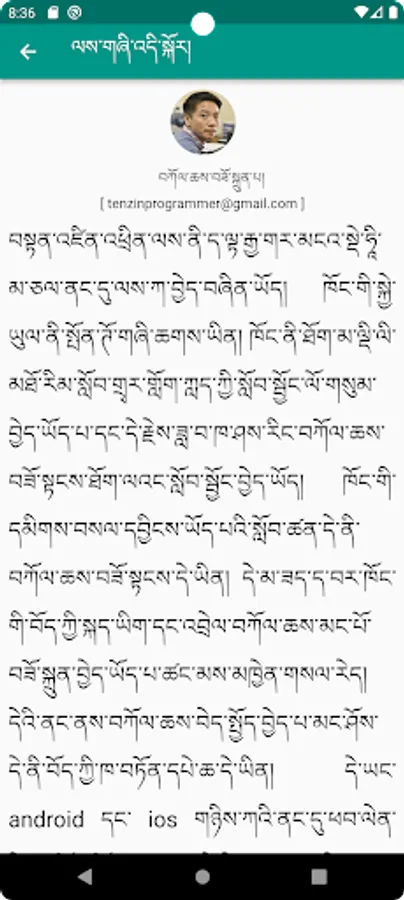 8:36
ལས་གཞི་འདི་སྐོར།
བཀོལ་ཆས་བཟོ་སྐྲུན་པ།
[ tenzinprogrammer@gmail.com ]
བསྟན་འཛིན་འཕྲིན་ལས་ནི་ད་ལྟ་རྒྱ་གར་མངའ་སྡེ་ཧཱི་
མ་ཅལ་ནང་དུ་ལས་ཀ་བྱེད་བཞིན་ཡོད། ཁོང་གི་སྐྱེ་
ཡུལ་ནི་སྤོན་ཊོ་གཞི་ཆགས་ཡིན། ཁོང་ནི་ཐོག་མ་ལྡི་ལི་
མཐོ་རིམ་སློབ་གྲྭར་གློག་ཀླད་ཀྱི་སློབ་སྦྱོང་ལོ་གསུམ་
བྱེད་ཡོད་པ་དང་དེ་རྗེས་ཟླ་བ་ཁ་ཤས་རིང་བཀོལ་ཆས་
བཟོ་སྟངས་ཐོག་ལའང་སློབ་སྦྱོང་བྱེད་ཡོད། ཁོང་གི་
དམིགས་བསལ་དབྱིངས་ཡོད་པའི་སློབ་ཚན་དེ་ནི་
བཀོལ་ཆས་བཟོ་སྟངས་དེ་ཡིན། དེ་མ་ཟད་ད་བར་ཁོང་
གི་བོད་ཀྱི་སྐད་ཡིག་དང་འབྲེལ་བཀོལ་ཆས་མང་པོ་
བཟོ་སྐྲུན་བྱེད་ཡོད་པ་ཚང་མས་མཁྱེན་གསལ་རེད།
དེའི་ནང་ནས་བཀོལ་ཆས་བེད་སྤྱོད་བྱེད་པ་མང་ཤོས་
དེ་ནི་བོད་ཀྱི་ཁ་བཏོན་དཔེ་ཆ་དེ་ཡིན། དེ་ཡང་
android དང་ ios གཉིས་ཀའི་ནང་དུ་ཕབ་ལེན་